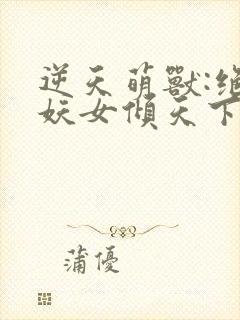 逆天萌獸:絕
妖女傾天下
蒲優